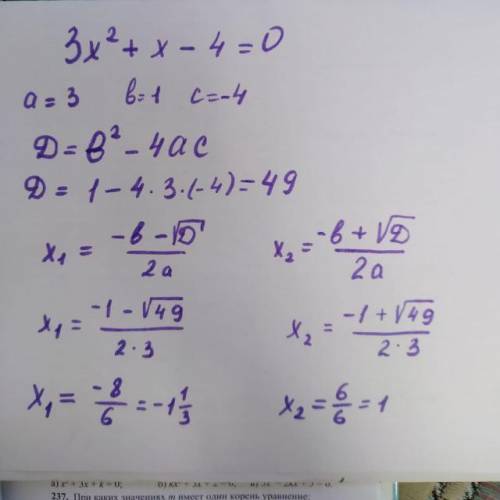 3x² + x - 4 = 0
a = 3 в=1 c=-4
Д = в² - 4ac
Д = 1 - 4·3·(-4) = 49
x₁ = (-в - √Д)/2a x₂ = (-в + √Д)/2a
x₁ = (-1 - √49)/2·3 x₂ = (-1 + √49)/2·3
x₁ = -8/6 = -1 1/3 x₂ = 6/6 = 1
237. При каких значениях m имеет один корень уравнение